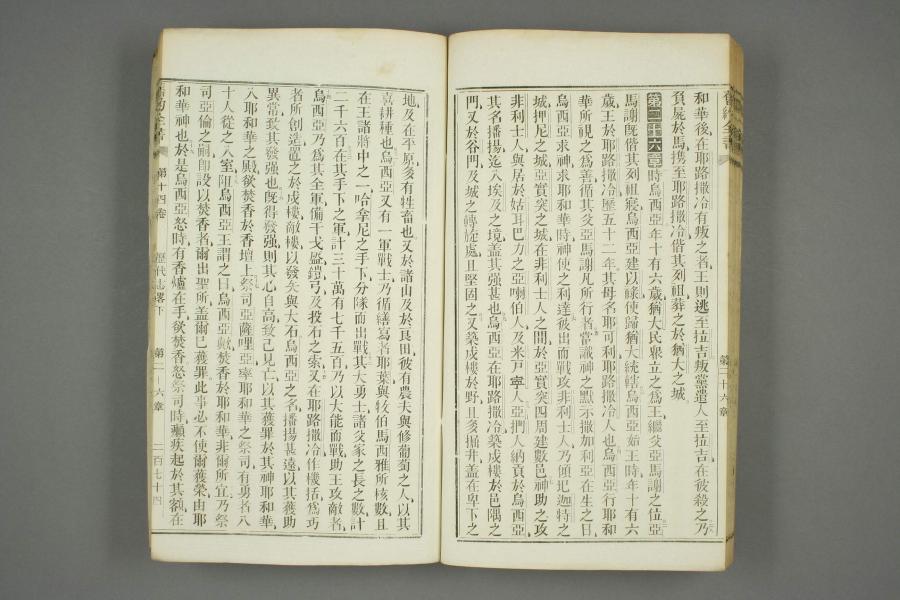 舊約全書
第二十六章
和華後、在耶路撒冷有叛之者、王則逃至拉吉、叛黨遣人至拉吉、在彼殺之、乃
負屍於馬、攜至耶路撒冷、偕其列祖葬之於猶大之城、
第二十六章 時烏西亞年十有六歲、猶大民衆立之爲王、繼父亞馬謝之位、亞
馬謝旣偕其列祖寢、烏西亞建以祿、使歸猶大統轄、烏西亞始王時、年十有六
歲、王於耶路撒冷歷五十二年、其母名耶可利、耶路撒冷人也、烏西亞行耶和
華所視之爲善、循其父亞馬謝凡所行者、當識神之默示撒加利亞在生之日、
烏西亞求神、求耶和華時、神使之利達、彼出而戰、攻非利士人、乃傾圯迦特之
城、押尼之城、亞實突之城、在非利士人之間、於亞實突四周建數邑、神助之攻
非利士人、與居於姑耳巴力之亞喇伯人、及米戸寧人、亞捫人納貢於烏西亞、
其名播揚迄入埃及之境、蓋其强甚也、烏西亞在耶路撒冷築戍樓於邑隅之
門、又於谷門、及城之轉旋處、且堅固之、又築戍樓於野、且多掘井、蓋在卑下之
地、及在平原、多有牲畜也、又於諸山及於艮田、彼有農夫與修葡萄之人、以其
喜耕種也、烏西亞又有一軍戰士、乃循繕寫者耶葉與牧伯馬西雅所核數、且
在王諸將中之一哈拿尼之手下、分隊而出戰、其大勇士諸父家之長之數、計
二千六百、在其手下之軍、計三十萬有七千五百、乃以大能而戰、助王攻敵者、
烏西亞乃爲其全軍備干戈盔鎧弓、及投石之索、又在耶路撒冷作機括、爲巧
者所創造、置之於戍樓敵樓、以發矢與大石、烏西亞之名播揚甚遠、以其獲助
異常、致其發强也、旣得發强、則其心自高、致己見亡、以其獲罪於其神耶和華、
入耶和華之殿、欲焚香於香壇上、祭司亞薩哩亞率耶和華之祭司、有勇者八
十人、從之入室、阻烏西亞王、謂之曰、烏西亞歟、焚香於耶和華、非爾所宜、乃祭
司亞倫之嗣、卽設以焚香者、爾出聖所、蓋爾已獲罪、此事必不使爾獲榮、由耶
和華神也、於是烏西亞怒、時有香爐在手、欲焚香、怒祭司時、癩疾起於其額、在
舊約全書
第十四卷
歷代志畧下
第二十六章
二百七十四